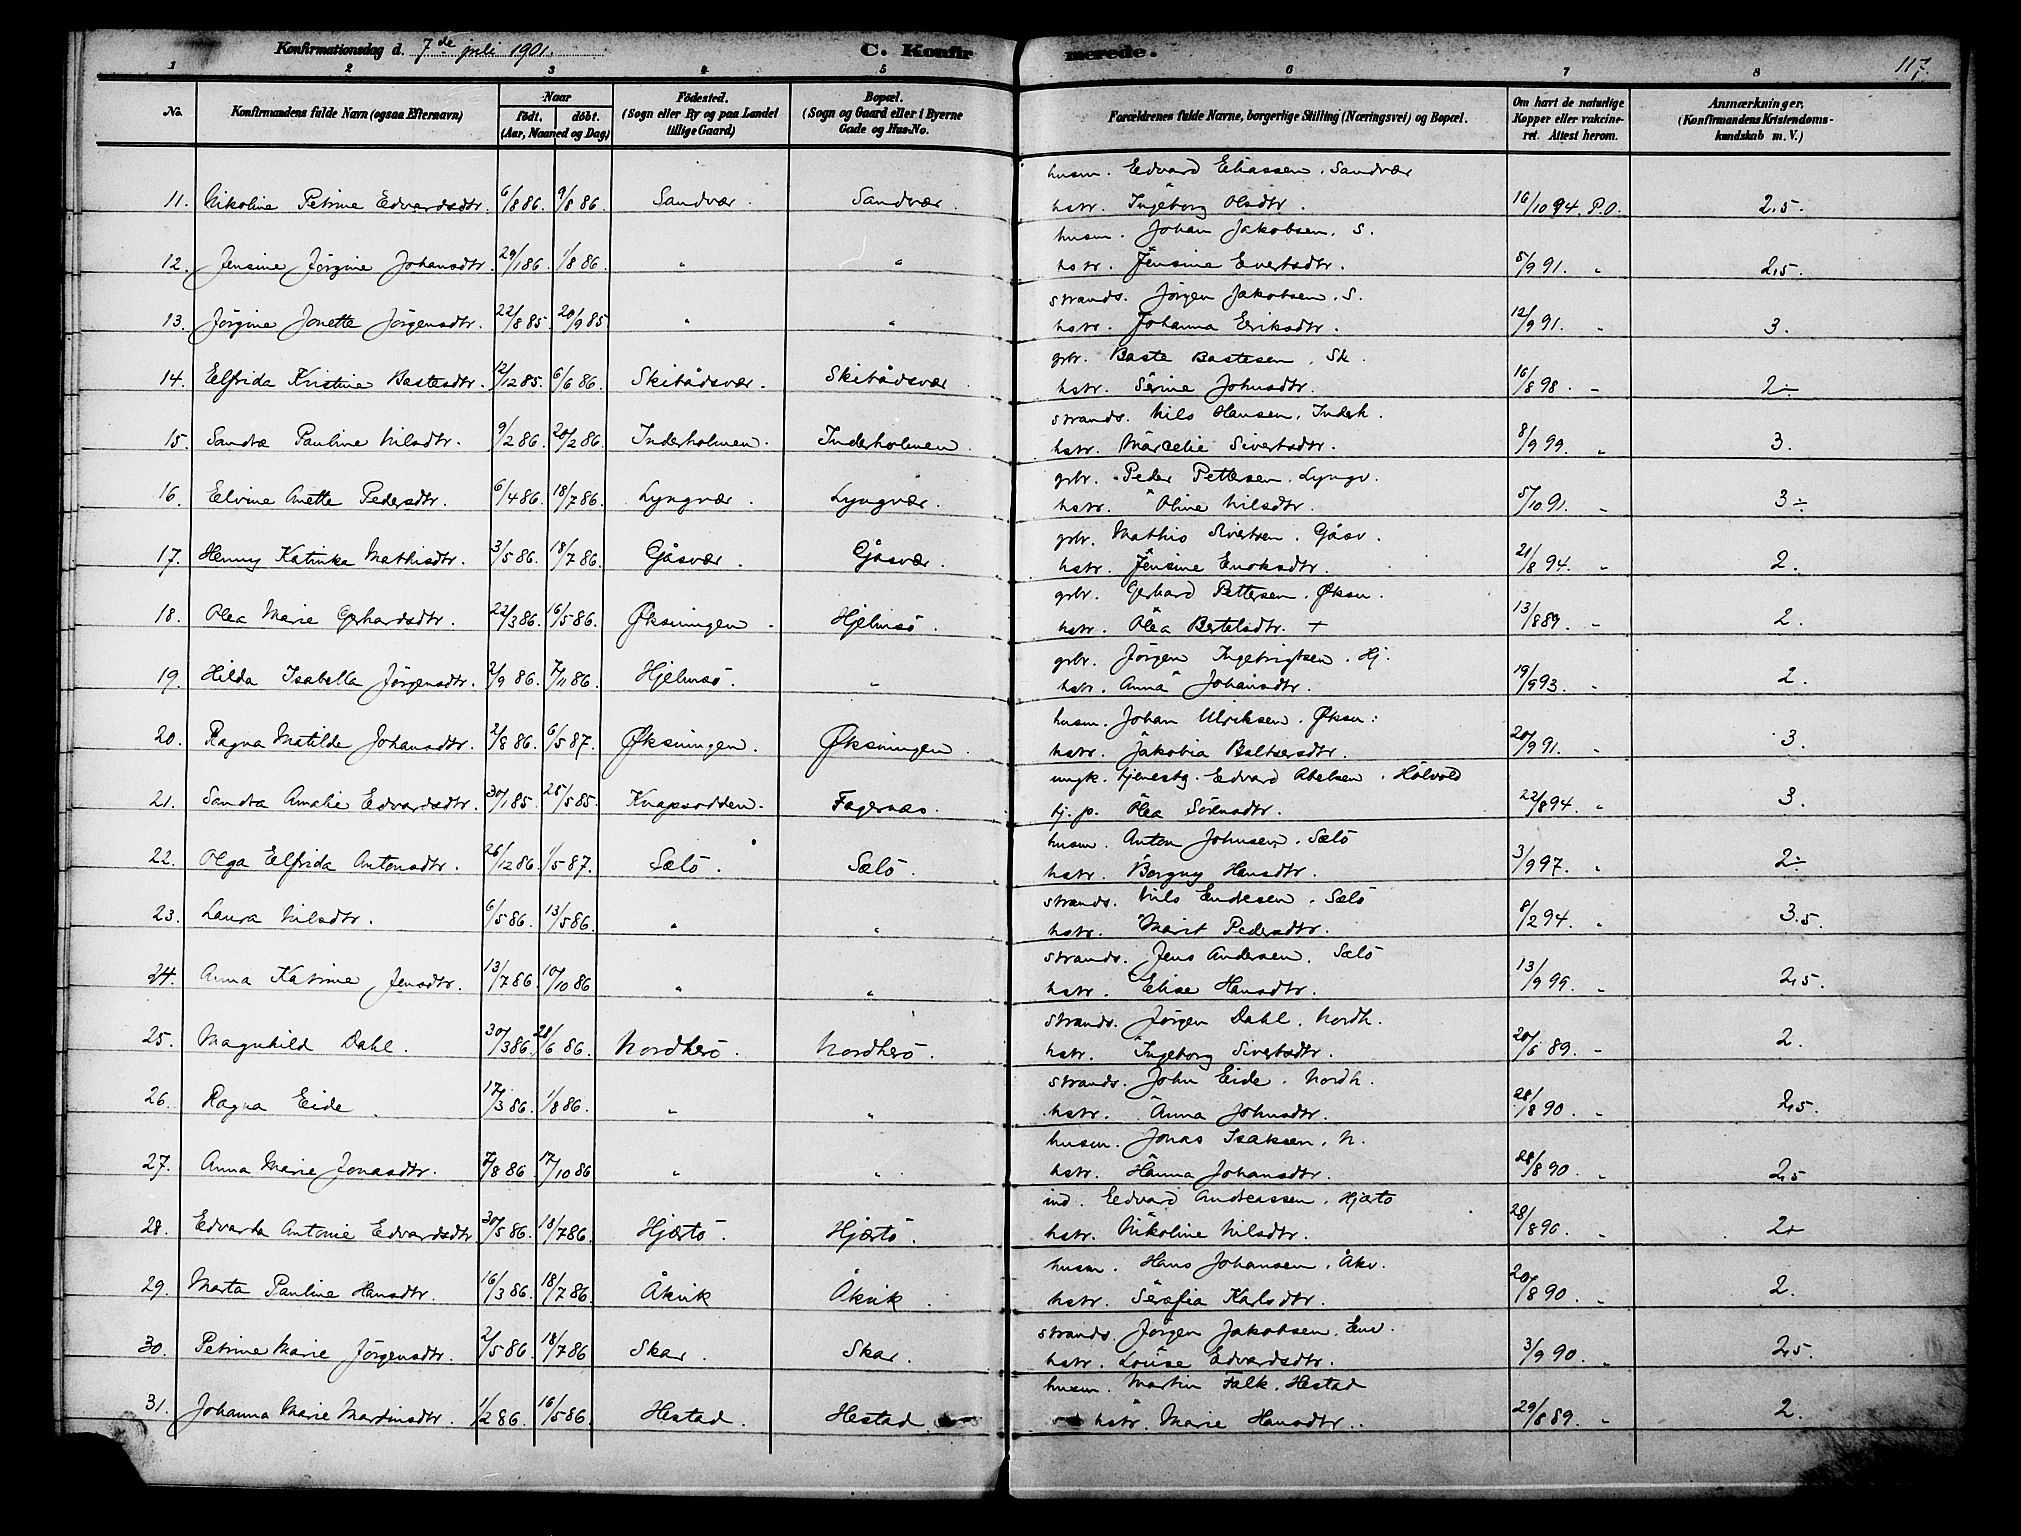 Konfirmationsdag d. 7de juli 1901. C. Konfirmerede. 117.
1 2 3 4 5 6 7 8
No. Konfirmandens fulde Navn (ogsaa Efternavn) Naar født. døbt. (Aar, Maaned og Dag) Fødested. (Sogn eller By og paa Landet tillige Gaard) Bopæl. (Sogn og Gaard eller i Byerne Gade og Hus-No. Forældrenes fulde Navne, borgerlige Stilling (Næringsvei) og Bopæl. Om havt de naturlige Kopper eller vakcineret. Attest herom. Anmærkninger. (Konfirmandens Kristendomskundskab m. V.)
husm. Edvard Eliassen. Sandvær
11. Nikoline Petrine Edvardsdtr. 6/8 86. 9/8 86. Sandvær. Sandvær. hstr. Ingeborg Olsdtr. 16/10 94. P.O. 2,5.
husm. Johan Jakobsen. S.
12. Jensine Jørgine Johansdtr. 29/1 86. 1/8 86. " " hstr. Jensine Evertsdtr. 5/9 91. " 2,5.
strands. Jørgen Jakobsen. S.
13. Jørgine Jonette Jørgensdtr. 22/8 85. 20/9 85 " " hstr. Johanna Eriksdtr. 12/9 91. " 3.
grbr. Baste Bastesen. Sk.
14. Elfrida Kristine Bastesdtr. 12/12 85. 6/6 86. Skibådsvær. Skibådsvær. hstr. Serine Johnsdtr. 16/8 98. " 2÷
strands. Nils Hansen. Inderh.
15. Sandra Pauline Nilsdtr. 9/2 86. 20/2 86. Inderholmen. Inderholmen. hstr. Marcelie Sivertsdtr. 8/9 99. " 3.
grbr. Peder Pettersen. Lyngv.
16. Elvine Anette Pedersdtr. 6/4 86. 18/7 86. Lyngvær. Lyngvær. hstr. Oline Nilsdtr. 5/10 91. " 3÷
grbr. Mathis Sivertsen. Gåsv.
17. Henny Katinka Mathisdtr. 3/5 86. 18/7 86. Gåsvær. Gåsvær. hstr. Jensine Enoksdtr. 21/8 94. " 2.
grbr. Gerhard Pettersen. Øksn.
18. Olea Marie Gerhardsdtr. 22/3 86. 16/5 86. Øksningen. Hjelmsö. hstr. Olea Bertelsdtr. + 13/8 89. " 2.
grbr. Jørgen Ingebrigtsen. Hj.
19. Hilda Isabella Jørgensdtr. 2/9 86. 7/11 86. Hjelmsö. " hstr. Anna Johansdtr. 19/9 93. " 2.
husm. Johan Ulriksen. Øksn:
20. Ragna Matilde Johansdtr. 2/8 86. 6/5 87. Øksningen. Øksningen. hstr. Jakobia Baltsersdtr. 20/9 91. " 3.
ungk. tjenestg. Edvard Abelsen. Hölvold
21. Sandra Amalie Edvardsdtr. 30/1 85. 25/5 85. Knapsodden. Fagernas. tj. p. Olea Sörensdtr. 22/8 94. " 3.
husm. Anton Johnsen. Sælö
22. Olga Elfrida Antonsdtr. 26/12 86. 1/5 87. Sælö. Sælö. hstr. Borgny Hansdtr. 3/9 97. " 2÷
strands. Nils Endresen. Sælö
23. Laura Nilsdtr. 6/5 86. 13/5 86. " " hstr. Marit Pedersdtr. 8/2 94. " 3.5
strands. Jens Andersen. Sælö
24. Anna Katrine Jensdtr. 13/7 86. 10/10 86 " " hstr. Elise Hansdtr. 13/9 99. " 2,5.
strands. Jørgen Dahl. Nordh.
25. Magnhild Dahl. 30/3 86. 28/6 86. Nordherö. Nordherö. hstr. Ingeborg Sivertsdtr. 20/6 89. " 2.
strands. John Eide. Nordh.
26. Ragna Eide. 17/3 86. 1/8 86. " " hstr. Anna Johnsdtr. 28/8 90. " 2,5.
husm. Jonas Isaksen. N.
27. Anna Marie Jonasdtr. 7/8 86. 17/10 86 " " hstr. Hanna Johansdtr. 28/8 90. " 2,5
ind. Edvard Andreassen. Hjærtö
28. Edvarda Antonie Edvardsdtr 30/5 86. 18/7 86. Hjærtö. Hjærtö. hstr. Nikoline Nilsdtr. 28/8 90. " 2+
husm. Hans Johansen. Åkv.
29. Marta Pauline Hansdtr. 16/3 86. 18/7 86. Åkvik Åkvik. hstr. Serafia Karlsdtr. 20/8 90. " 2.
strands. Jørgen Jakobsen.
30. Petrine Marie Jørgensdtr. 2/5 86. 18/7 86 Skar. Skar. hstr. Louise Edvardsdtr. 3/9 90. " 2,5.
husm. Martin Falk. Hestad
31. Johanna Marie Martinsdtr. 1/2 86. 16/5 86. Hestad. Hestad. hstr. Marie Hansdtr. 29/8 89. " 2.